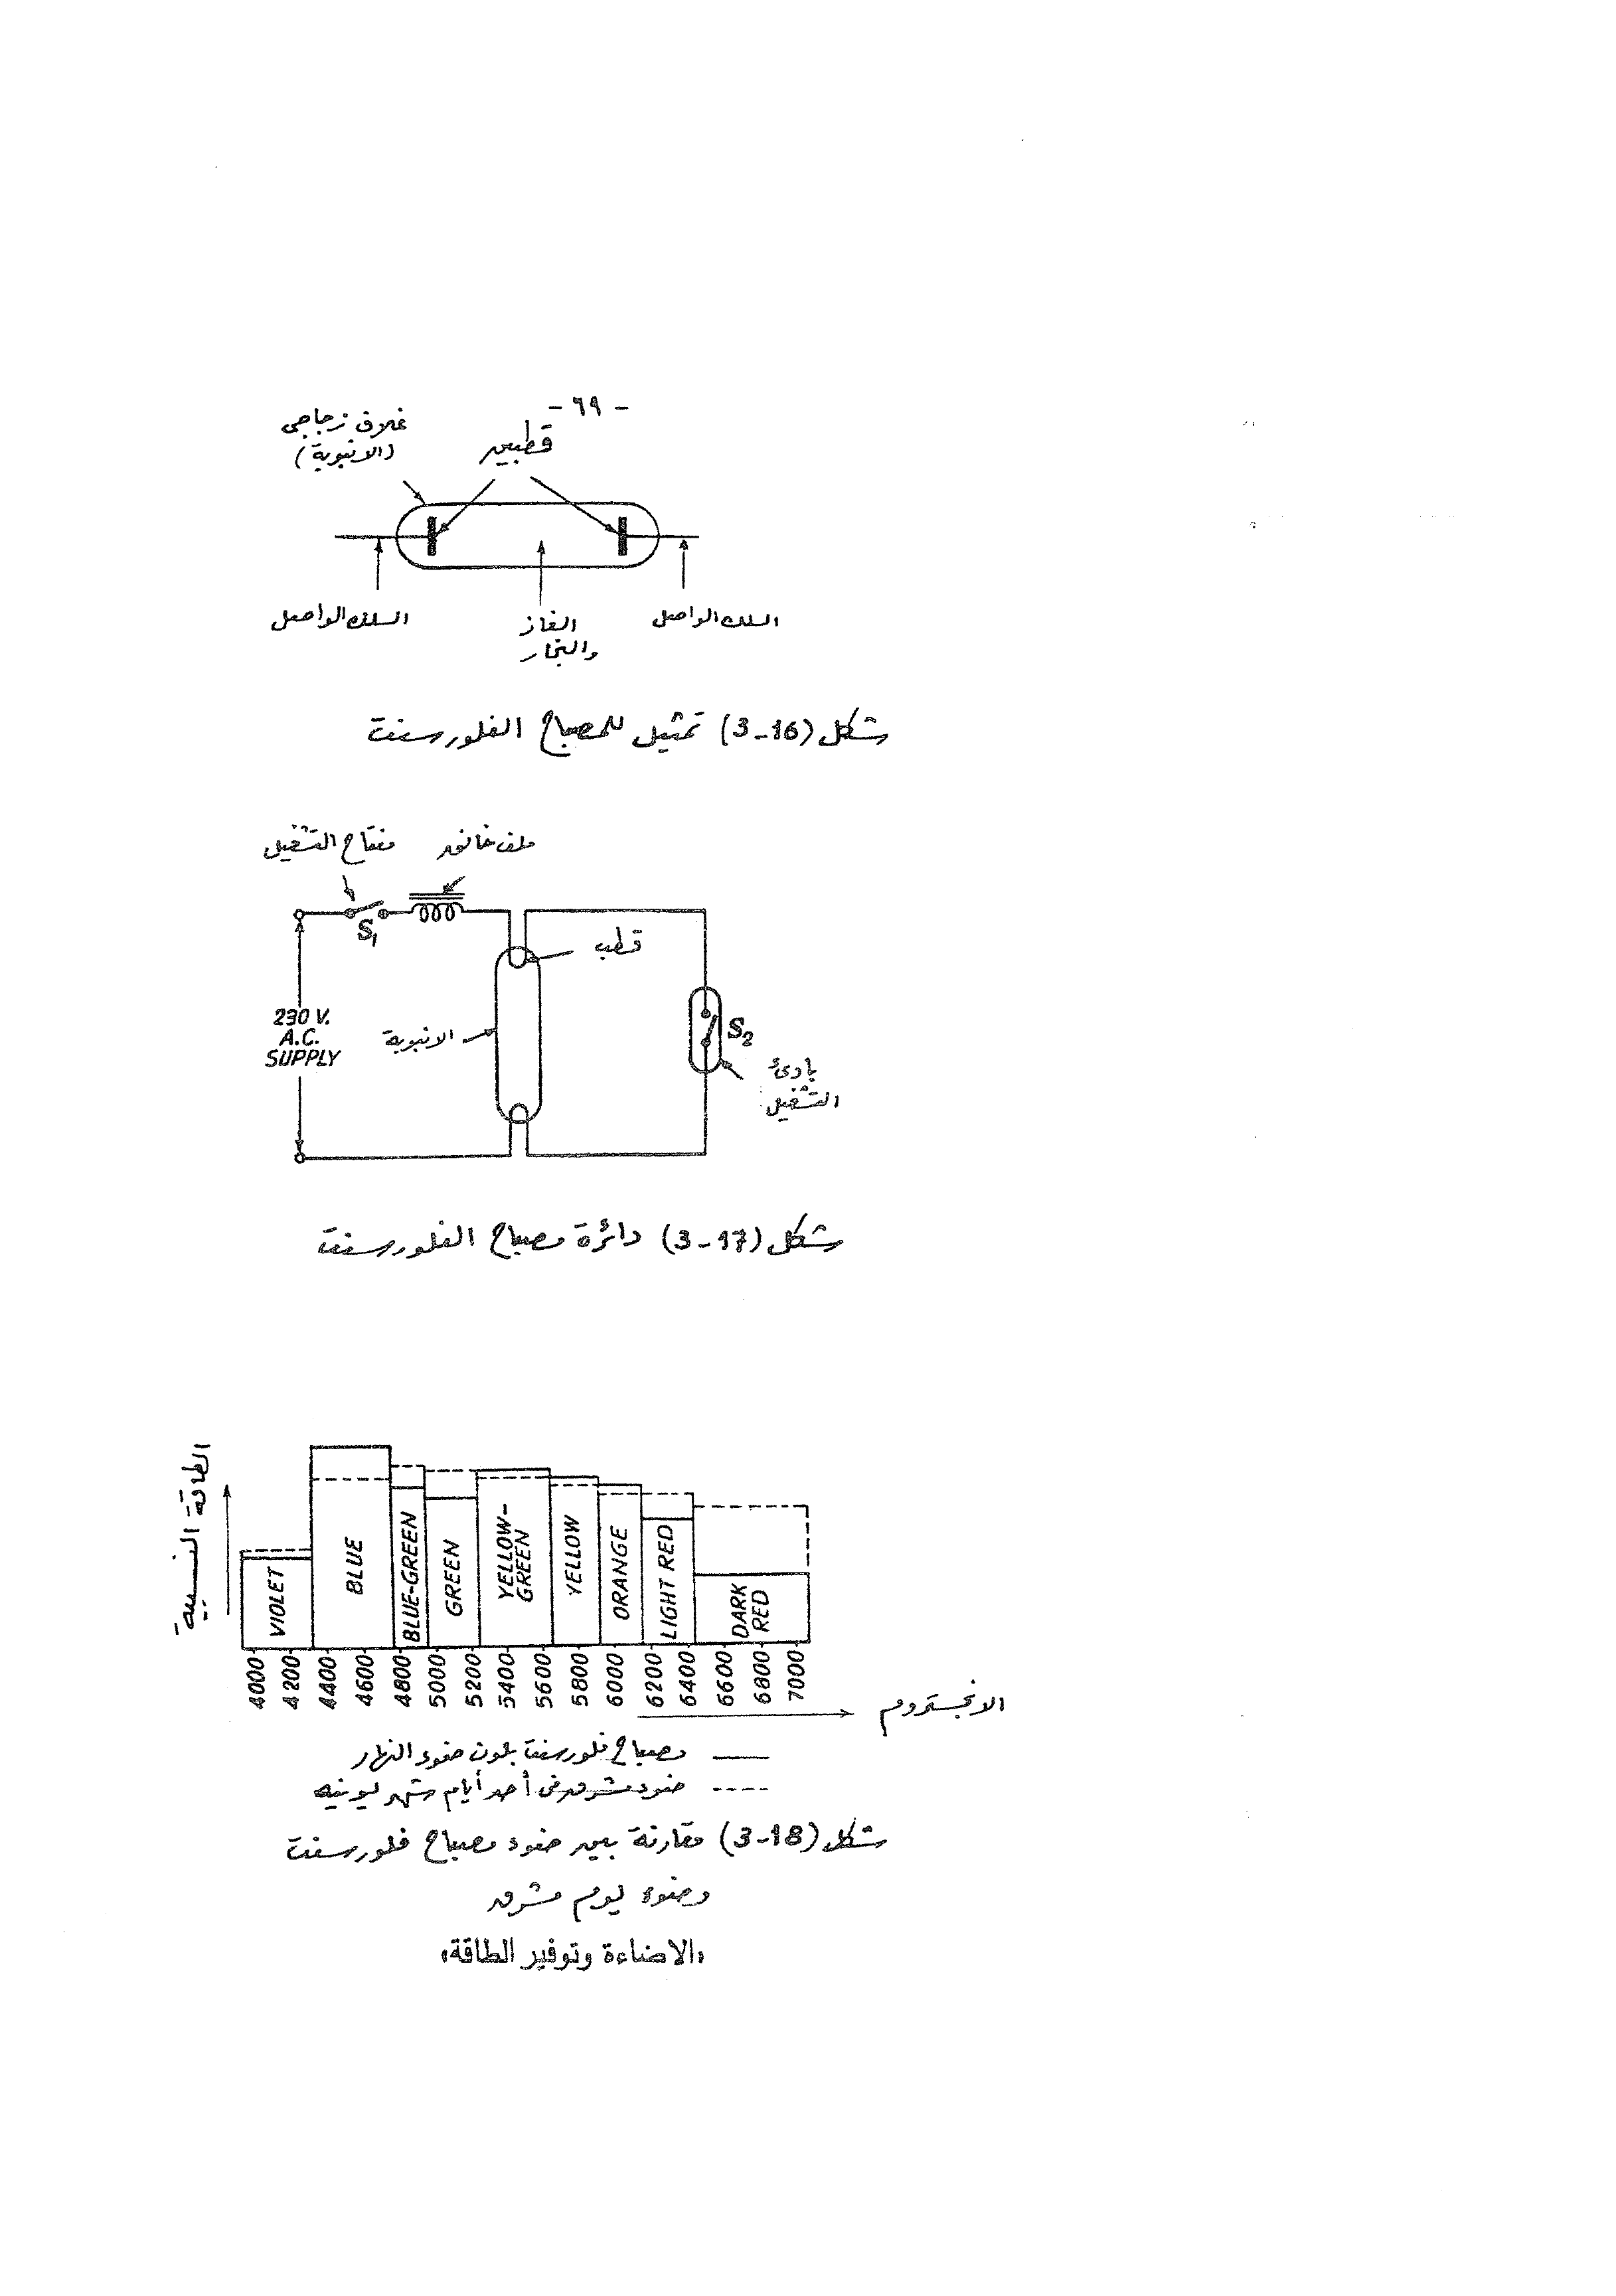 - ٦٩ -
غلاف زجاجى
(الانبوبة)
قطبين
السلك الواصل
الغاز
والبخار
السلك الواصل
شكل (3-16) تمثيل للمصباح الفلورسنت
مفتاح التشغيل
ملف خانق
S1
قطب
230 V.
A.C.
SUPPLY
الانبوبة
S2
بادئ
التشغيل
شكل (3-17) دائرة مصباح الفلورسنت
الطاقة النسبية
VIOLET
BLUE
BLUE-GREEN
GREEN
YELLOW-
GREEN
YELLOW
ORANGE
LIGHT RED
DARK
RED
4000 4200 4400 4600 4800 5000 5200 5400 5600 5800 6000 6200 6400 6600 6800 7000
الانجستروم
مصباح فلورسنت بلون ضوء النهار
ضوء مشرق فى أحد أيام شهر يونيه
شكل (3-18) مقارنة بين ضوء مصباح فلورسنت
وضوء يوم مشرق
«الاضاءة وتوفير الطاقة»